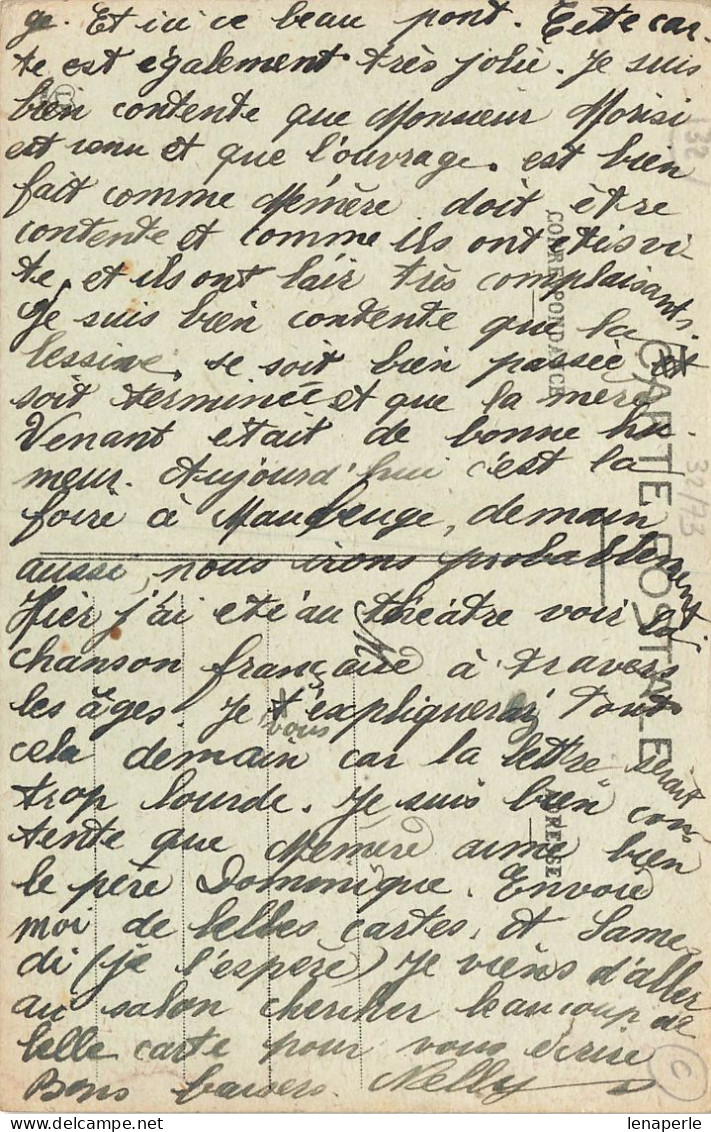 ge. Et ici ce beau pont. Cette car-
te est également très jolie. Je suis
bien contente que Monsieur Morisi
est venu et que l'ouvrage. est bien
fait comme Mémère doit être
contente et comme ils ont été si vi
te, et ils ont l'air très complaisants.
Je suis bien contente que la
lessive, se soit bien passée et
soit terminée et que la mère
Venant était de bonne hu
meur. Aujourd'hui c'est la
foire à Maubeuge, demain
aussi, nous irons probablement.
Hier j'ai eté au théâtre voir la
chanson française à travers
les âges. Je t'expliquerai tout
vous
cela demain car la lettre serait
trop lourde. Je suis bien con
tente que Memère aime bien
le père Dominique. Envoie
moi de belles cartes, et Same
di (je l'espère) Je viens d'aller
au salon chercher beaucoup de
belle carte pour vous écrire
Bons baisers. Nelly
CARTE POSTALE
CORRESPONDANCE
ADRESSE
M
132
32/73
C
lenaperle